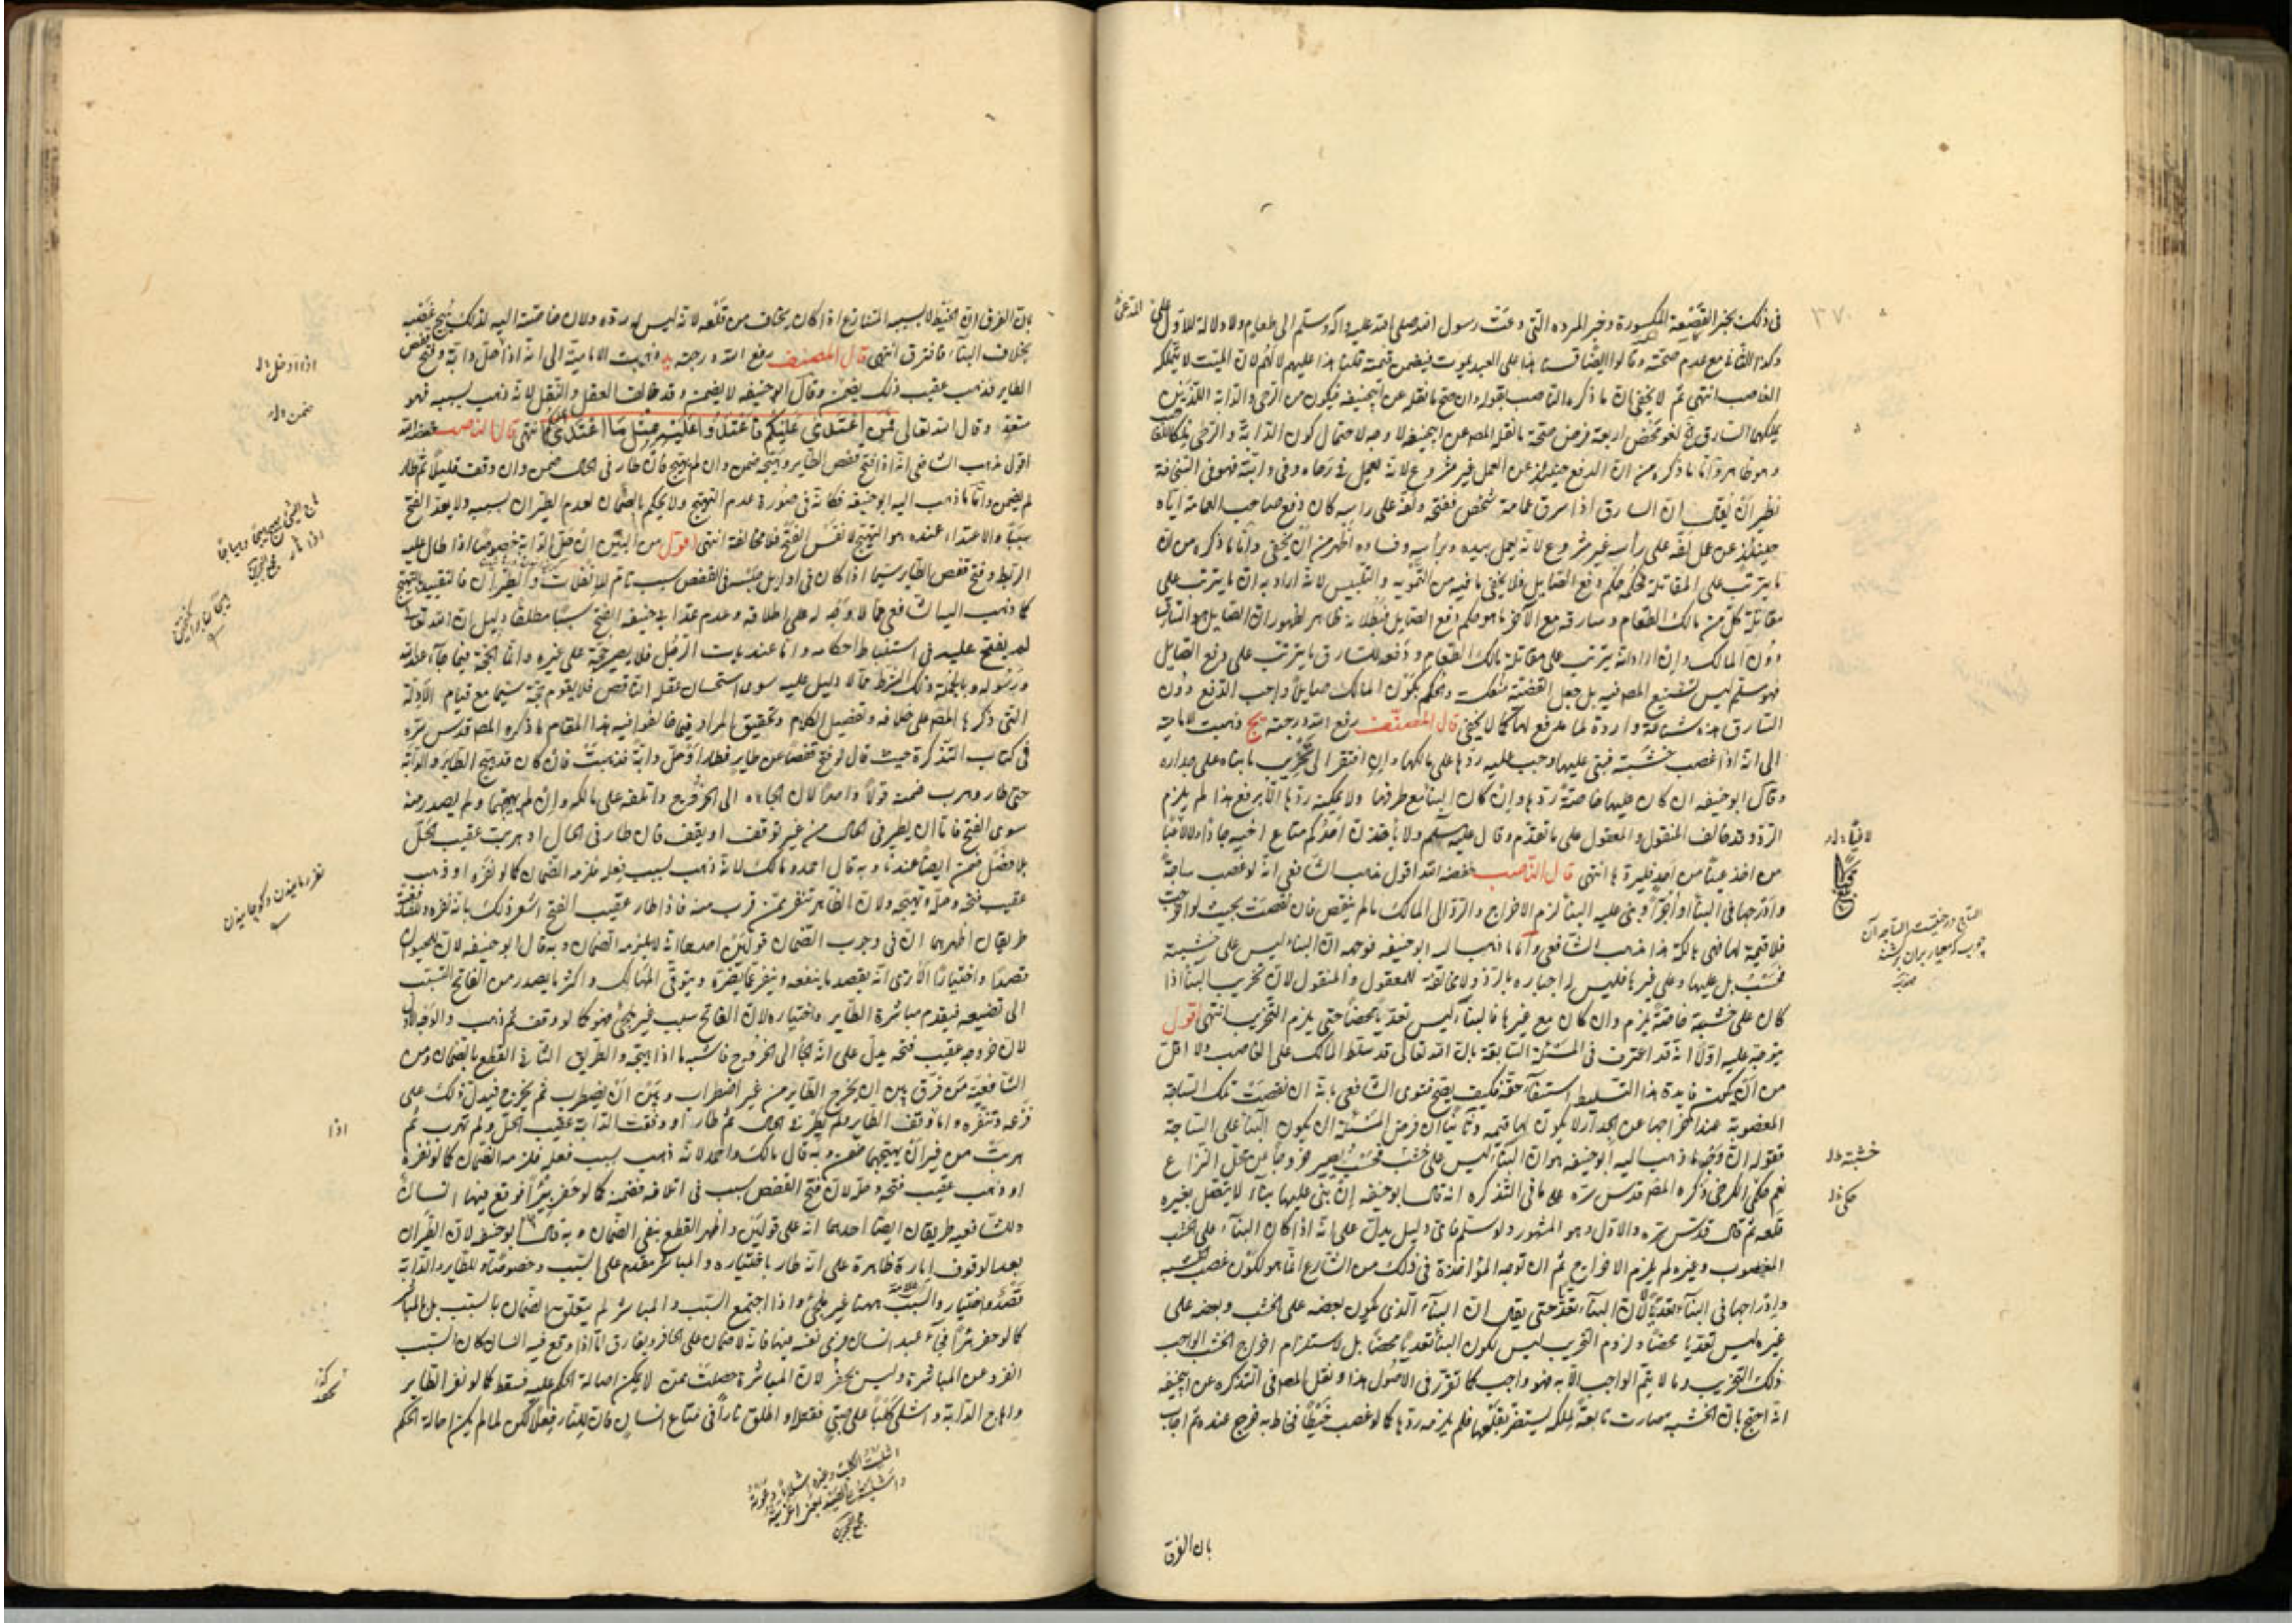 في ذلك بخبر القصعة المكسورة وخبر المرءة التي دعت رسول الله صلى الله عليه وآله وسلم الى طعام ولا دلالة للاول على المدعى
وكذا الثاني مع عدم صحته وقالوا ايضا قسنا هذا على العبد يموت فيضمن قيمته قلنا هذا عليهم لا لهم لان الميت لا يتملكه
الغاصب انتهى ثم لا يخفى ان ما ذكره الناصب بقوله وان صح ما نقله عن ابي حنيفة فيكون من الرحى والدابة اللذين
يملكهما السارق لغو محض اربعة فرض صحة ما نقل المص عن ابي حنيفة لا وجه لاحتمال كون الدابة والرحى
وهو ظاهر واما ما ذكره من ان الدفع حينئذ عن العمل غير مشروع لانه يعمل في رحاه وفي دابته فهو في السخافة
نظير ان يقال ان السارق اذا سرق عمامة شخص ففتحه ولفه على راسه كان دفع صاحب العمامة اياه
حينئذ عن عمل لفه على رأسه غير مشروع لانه يعمل بيده وبرأسه وفساده اظهر من ان يخفى واما ما ذكره من ان
ما يترتب على المقاتلة فحكمه حكم دفع الصايل فلا يخفى ما فيه من التمويه والتلبيس لانه اراد به ان ما يترتب على
مقاتلة كل من مالك الطعام وسارقه مع الآخر ما هو حكم دفع الصايل فبطلانه ظاهر لظهور ان الصايل هو السارق
دون المالك وان اراد انه يترتب على مقاتلة مالك الطعام ودفعه للسارق ما يترتب على دفع الصايل
فهو مسلم ليس تشنيع المص فيه بل جعل القضية منعكسة والحكم بكون المالك صايلا واجب الدفع دون
السارق هذه شناعة واردة لما مدفع لها كما لا يخفى قال المصنف رفع الله درجته يج وذهبت الامامية
الى انه اذا غصب خشبة فبنى عليها وجب عليه ردها على مالكها وان افتقر الى تخريب ما بناه على جداره
وقال ابو حنيفة ان كان عليها خاصة ردها وان كان البناء مع طرفها ولا يمكنه ردها الا برفع هذا لم يلزم
الرد وقد خالف المنقول والمعقول على ما تقدم وقال عليه السلم ولا يأخذن احدكم متاع اخيه جادا ولا لاعبا
من اخذ عصا من اخيه فليردها انتهى قال الناصب خفضه الله اقول مذهب الشافعي انه لو غصب ساجة
وادرجها في البناء او آجرا وبنى عليه البناء لزم الاخراج والرد الى المالك ما لم ينقص فان نقصت بحيث لو اخرجت
فلا قيمة لها فهي هالكة هذا مذهب الشافعي واما ما ذهب اليه ابو حنيفة فوجهه ان البناء ليس على خشبة
فحسب بل عليها وعلى غيرها فليس له اجباره بالرد ولا مخالفة للمعقول والمنقول لان تخريب البناء اذا
كان على خشبة خاصة يلزم وان كان مع غيرها فالبناء ليس تعديا محضا حتى يلزم التخريب انتهى اقول
يتوجه عليه اولا انه قد اعترف في المسئلة السابقة بان الله تعالى قد سلط المالك على الغاصب ولا اقل
من ان يكون فايدة هذا التسليط استيفاء حقه فكيف يصح فتوى الشافعي بانه ان نقصت تلك الساجة
المغصوبة عند اخراجها عن الجدار لا يكون لها قيمة وثانيا ان فرض المسئلة ان يكون البناء على الساجة
فقوله ان وجه ما ذهب اليه ابو حنيفة هو ان البناء ليس على خشب فحسب يصير خروجا عن محل النزاع
نعم حكى الكرخي ما ذكره المص قدس سره على ما في التذكرة انه قال ابو حنيفة إن بنى عليها بناء لا يتصل بغيره
قلعه ثم قال قدس سره والاول هو المشهور ولو سلم فاي دليل يدل على انه اذا كان البناء على الخشب
المغصوب وغيره لم يلزم الاخراج ثم ان توجه المؤاخذة في ذلك من الشارع انما هو لكون غصب الخشبة
وادراجها في البناء تعديا لا لان البناء تعد حتى يقال ان البناء الذي يكون بعضه على الخشب وبعضه على
غيره ليس تعديا محضا ولزوم التخريب ليس لكون البناء تعديا محضا بل لاستلزام اخراج الخشب الواجب
ذلك التخريب وما لا يتم الواجب الا به فهو واجب كما تقرر في الاصول هذا ونقل المص في التذكرة عن ابي حنيفة
انه احتج بان الخشبة صارت تابعة لملكه يستضر بقلعها فلم يلزمه ردها كما لو غصب خيطا فخاط به جرح عبده ثم اجاب
بان الفرق
خشبة
حكى
بان الفرق ان الخيط لا يسببه المتنازع اذا كان يخاف من قلعه لانه ليس له رده ولان حاجته اليه لذلك يبيح غصبه
بخلاف البناء فافترق انتهى قال المصنف رفع الله درجته يد وذهبت الامامية الى انه اذا حل دابة وفتح قفص
الطاير فذهب عقيب ذلك يضمن وقال ابو حنيفة لا يضمن وقد خالف العقل والنقل لانه ذهب بسببه فهو
متعد وقال الله تعالى فمن اعتدى عليكم فاعتدوا عليه بمثل ما اعتدى عليكم انتهى قال الناصب خفضه الله
اقول مذهب الشافعي انه اذا فتح قفص الطاير وهيجه ضمن وان لم يهيج فان طار في الحال ضمن وان وقف قليلا ثم طار
لم يضمن واما ما ذهب اليه ابو حنيفة فكانه في صورة عدم التهيج ولا يحكم بالضمان لعدم الطيران بسببه ولا يعد الفتح
سببا والاعتداء عنده هو التهيج لا نفس الفتح فلا مخالفة انتهى اقول من البين ان حل الدابة خصوصا اذا طال عليه
الربط وفتح قفص الطاير سيما اذا كان في اوايل حبسه في القفص سبب تام للانفلات والطيران فالتقييد بالتهيج
كما ذهب اليه الشافعي مما لا وجه له على اطلاقه وعدم عد ابي حنيفة الفتح سببا مطلقا دليل ان الله تعالى
لم يفتح عليه في استنباط احكامه فلا يصير حجة على غيره وانما الحجة فيما جاء عند الله
ورسوله وبالجملة ذلك الشرط مما لا دليل عليه سوى استحسان عقله الناقص فلا يقوم حجة سيما مع قيام الادلة
التي ذكرها المص على خلافه وتفصيل الكلام وتحقيق المراد فيما خالفوا فيه هذا المقام ما ذكره المص قدس سره
في كتاب التذكرة حيث قال لو فتح قفصا عن طاير فطار او حل دابة فذهبت فان كان قد هيج الطاير والدابة
حتى طار وهرب ضمنه قولا واحدا لان الجاءه الى الخروج واتلفه على مالكه وان لم يهيجهما ولم يصدر منه
سوى الفتح فاما ان يطير في الحال من غير توقف او يقف فان طار في الحال او هربت عقيب الحل
بلا فصل ضمن ايضا عندنا وبه قال احمد ومالك لانه ذهب بسبب فعله فلزمه الضمان كما لو نفره او ذهب
عقيب فتحه وحله وتهيجه ولان الطاير تنفر ممن قرب منه فاذا طار عقيب الفتح اشعر ذلك بانه نفره وللشافعية
طريقان اظهرهما ان في وجوب الضمان قولين احدهما انه لا يلزمه الضمان وبه قال ابو حنيفة لان للحيوان
قصدا واختيارا الا ترى انه يقصد ما ينفعه وينفر عما يضره ويتوقى المهالك واكثر ما يصدر من الفاتح التسبب
الى تضييعه فيقدم مباشرة الطاير واختياره لان الفاتح سبب غير ملجئ فهو كما لو وقف ثم ذهب والوجه الاول
لان خروجه عقيب فتحه يدل على انه الجأ الى الخروج فاشبه ما اذا هيجه والطريق الثاني القطع بالضمان ومن
الشافعية من فرق بين ان يخرج الطاير من غير اضطراب وبين ان يضطرب ثم يخرج فيدل ذلك على
فزعه وتنفره واما وقف الطاير ولم يطر في الحال ثم طار او وقفت الدابة عقيب الحل ولم تهرب ثم
هربت من غير ان يهيجهما ضمن وبه قال مالك واحمد لانه ذهب بسبب فعله فلزمه الضمان كما لو نفره
او ذهب عقيب فتحه وحله لان فتح القفص سبب في اتلافه فضمنه كما لو حفر بئرا فوقع فيها انسان
وللشافعية طريقان ايضا احدهما انه على قولين واظهر القطع بنفي الضمان وبه قال ابو حنيفة لان الطيران
بعد الوقوف امارة ظاهرة على انه طار باختياره والمباشر مقدم على السبب وخصوصا وللطاير والدابة
قصد واختيار والسبب ههنا غير ملجئ واذا اجتمع السبب والمباشر لم يتعلق الضمان بالسبب بل بالمباشر
كما لو حفر بئرا فجاء عبد انسان فرمى نفسه فيها فانه لا ضمان على الحافر ويفارق ما اذا وقع فيه انسان كان السبب
انفرد عن المباشرة وليس بحفر لان المباشرة حصلت ممن لا يمكن احالة الحكم عليه فسقط كما لو نفر الطاير
واهاج الدابة واشلى كلبا على صبي فقتله او اطلق نارا في متاع انسان فان للنار فعلا لكن لما لم يكن احالة الحكم
اذا